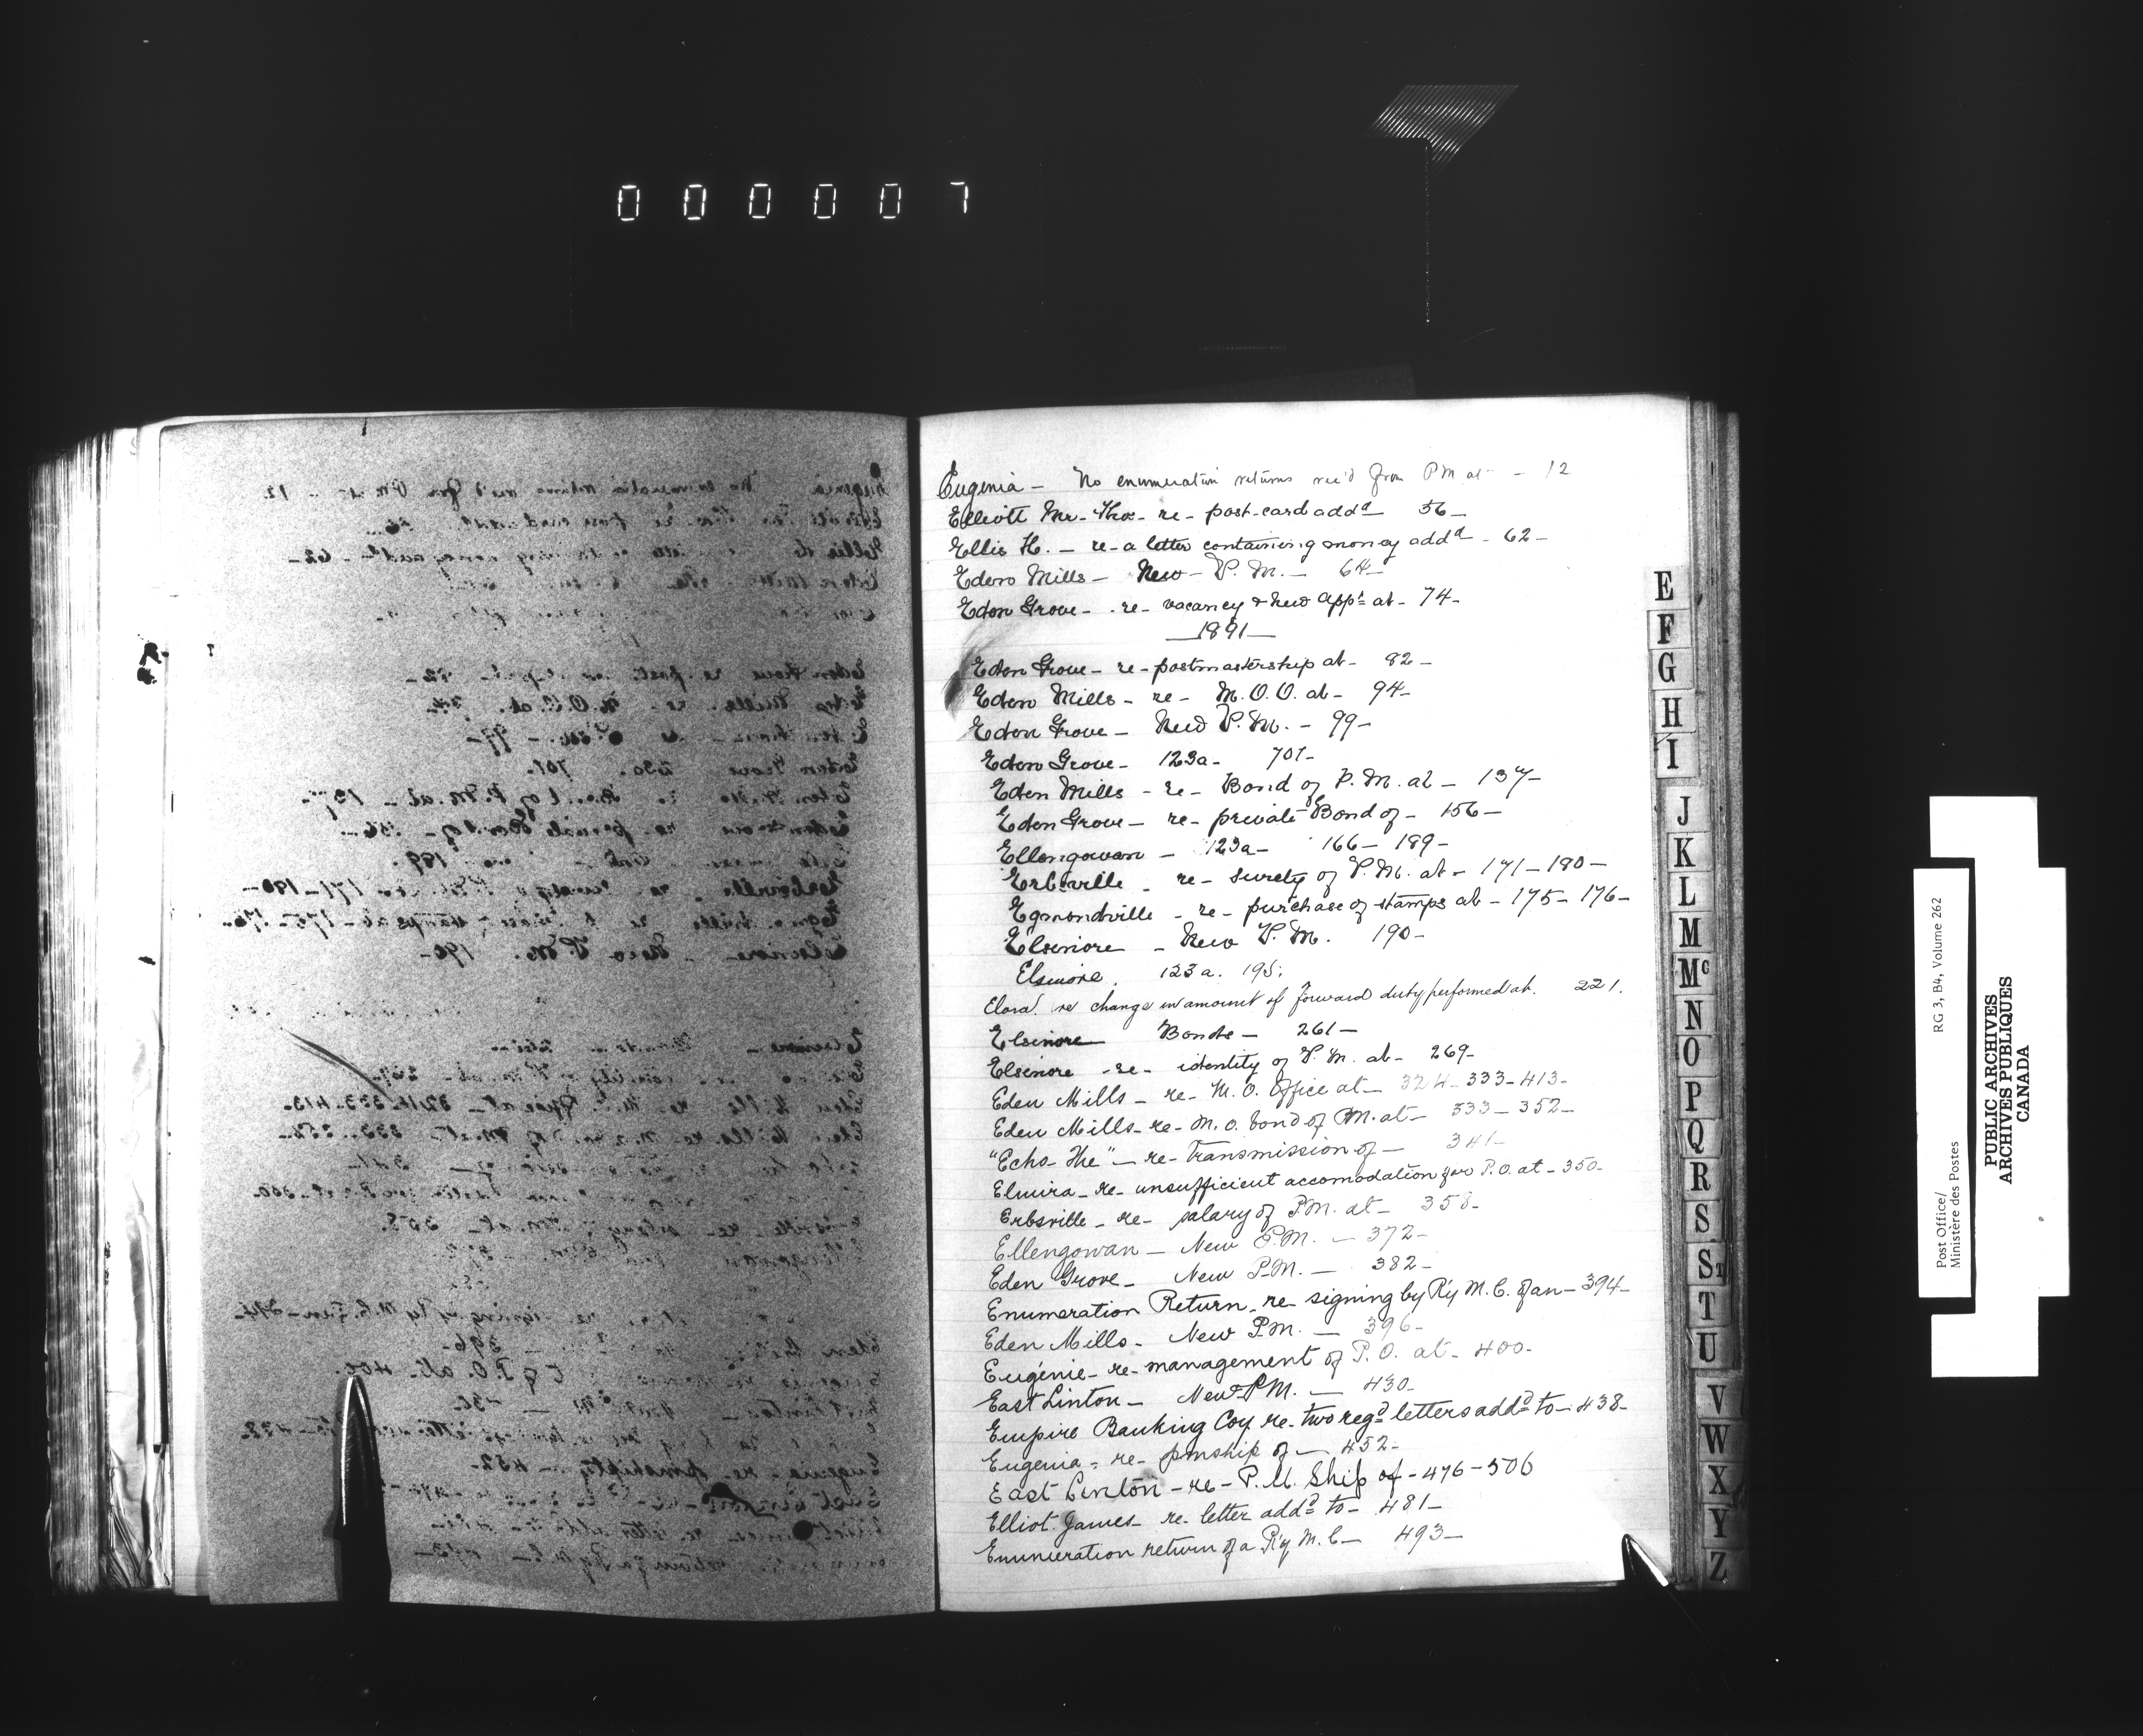 000007
Eugenia – No enumeration returns rec'd from PM at – 12
Elliott Mr. Thos. re- post-card addd 56–
Ellis H. – re- a letter containing money addd – 62–
Eden Mills – New – P. M. – 64–
Eden Grove – re- vacancy & new appt at – 74–
–1891–
Eden Grove – re- postmastership at – 82–
Eden Mills – re- M.O.O. at – 94–
Eden Grove – New P.M. – 99–
Eden Grove – 123a – 101–
Eden Mills – re- Bond of P.M. at – 137–
Eden Grove – re- private Bond of – 156–
Ellengowan – 123a – 166– 189–
Erbsville – re- surety of P.M. at – 171–180–
Egmondville – re- purchase of stamps at – 175– 176–
Elsinore – New P.M. 190–
Elsinore. 123a. 195.
Elora. re change in amount of forward duty performed at. 221.
Elsinore Bonds – 261–
Elsinore – re- identity of P.M. at – 269–
Eden Mills – re- M.O. Office at – 324– 333–413–
Eden Mills – re- M.O. bond of PM. at – 333– 352–
"Echo– The" – re- Transmission of – 341–
Elmira – re- unsufficient accomodation for P.O. at – 350–
Erbsville – re- salary of P.M. at – 358–
Ellengowan – New P.M. – 372–
Eden Grove – New P.M. – 382–
Enumeration Return – re- signing by Ry M.C. of an – 394–
Eden Mills – New P.M. – 396–
Eugénie – re- management of P.O. at – 400–
East Linton – New P.M. – 430–
Empire Banking Coy. re- two regd letters addd to – 438–
Eugenia – re- pmship of – 452–
East Linton – re- P.M. Ship of – 476 – 506
Elliot James – re- letter addd to – 481–
Enumeration return of a Ry M.C. – 493–
E
F
G
H
I
J
K
L
M
Mc
N
O
P
Q
R
S
St
T
U
V
W
X
Y
Z
Post Office/ RG 3, B4, Volume 262
Ministère des Postes
PUBLIC ARCHIVES
ARCHIVES PUBLIQUES
CANADA